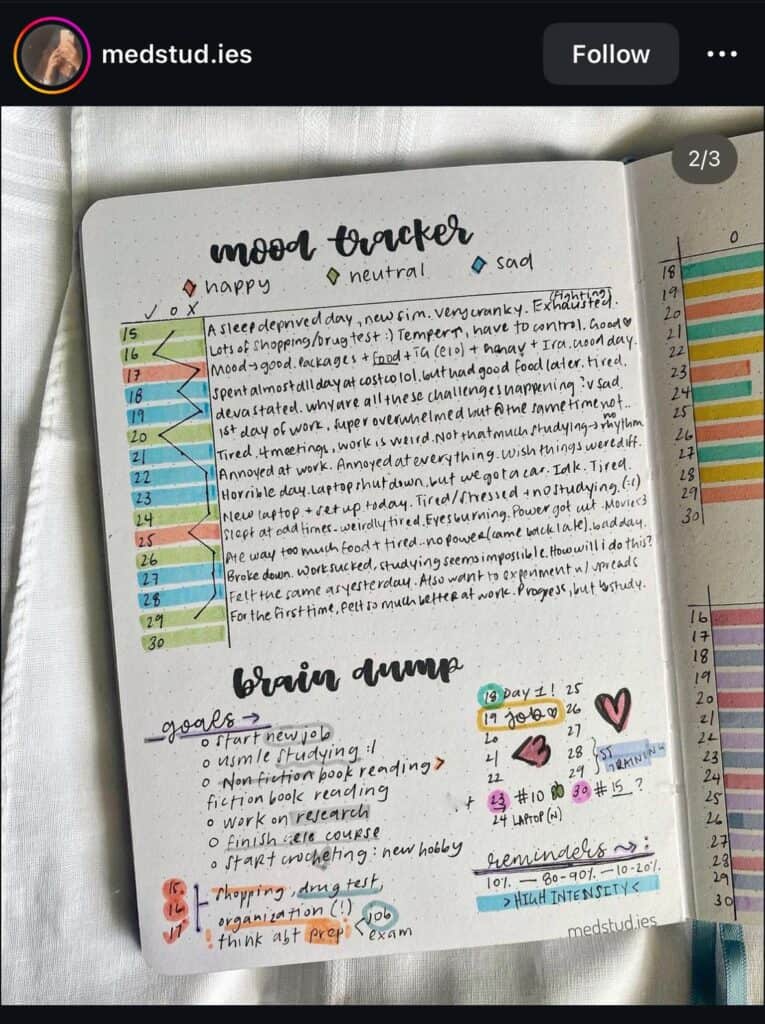 medstud.ies
Follow
2/3
mood tracker
happy neutral sad
✓ o x
15 A sleep deprived day, new sim. Very cranky. Exhausted. (Fighting)
16 Lots of shopping/drug test :) Temper↑, have to control. Good ♥
17 Mood → good. Packages + Food + IG (E10) + + Ira. Good day.
18 Spent almost all day at costco lol. but had good food later. tired.
19 devastated. why are all these challenges happening? v sad.
20 1st day of work, super overwhelmed but @ the same time not..
21 Tired, 4 meetings, work is weird. Not that much studying → no rhythm
22 Annoyed at work. Annoyed at everything. Wish things were diff.
23 Horrible day. Laptop shut down, but we got a car. Idk. Tired.
24 New laptop + set up today. Tired/stressed + no studying. (:()
25 Slept at odd times - weirdly tired. Eyes burning. Power got cut. Movie <3
26 Ate way too much food + tired - no power (came back late). bad day.
27 Broke down. Work sucked, studying seems impossible. How will i do this?
28 Felt the same as yesterday. Also want to experiment w/ spreads
29 For the first time, felt so much better at work. Progress, but study.
30
brain dump
goals →
o start new job
o usmle studying :/
o Non fiction book reading >
fiction book reading
o work on research
o finish course
o start crocheting : new hobby
15.
16
17
shopping, drug test,
organization (!)
! think abt prep! < job
exam
18 Day 1! 25
19 job ♡ 26
20 27
21 <3 28
22 29
JST TRAINING
+ 23 #10 30 #15 ?
24 LAPTOP (N)
reminders ⤳ :
10% — 80-90% — 10-20%
> HIGH INTENSITY <
medstud.ies
0
18
19
20
21
22
23
24
25
26
27
28
29
30
16
17
18
19
20
21
22
23
24
25
26
27
28
29
30